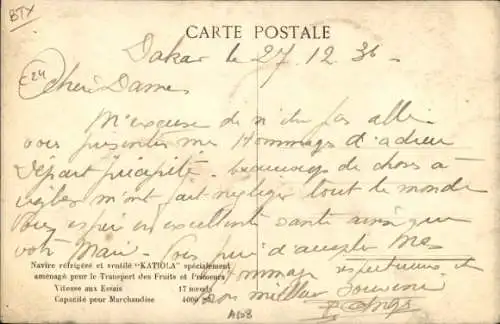 BTX
CARTE POSTALE
Dakar le 27.12.36
C24
Cheri Dames
M'excuse di n'être pas allé
vous présenter mes Hommages d'adieu
Départ précipité - beaucoup de choses à
régler m'ont fait négliger tout le monde
Vous espère en excellente santé ainsi que
votre Mari - Vous prie d'accepter Mes
Hommages respectueux et
mon meilleur Souvenir
Navire réfrigéré et ventilé "KATIOLA" spécialement
aménagé pour le Transport des Fruits et Primeurs
Vitesse aux Essais 17 nœuds
Capacité pour Marchandise 4000
A108